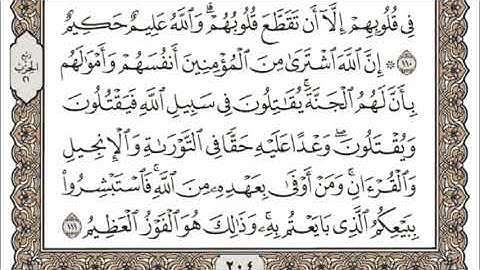 فِي قُلُوبِهِمۡ إِلَّآ أَن تَقَطَّعَ قُلُوبُهُمۡۗ وَٱللَّهُ عَلِيمٌ حَكِيمٌ
١١٠ ۞ إِنَّ ٱللَّهَ ٱشۡتَرَىٰ مِنَ ٱلۡمُؤۡمِنِينَ أَنفُسَهُمۡ وَأَمۡوَٰلَهُم
بِأَنَّ لَهُمُ ٱلۡجَنَّةَۚ يُقَٰتِلُونَ فِي سَبِيلِ ٱللَّهِ فَيَقۡتُلُونَ
وَيُقۡتَلُونَۖ وَعۡدًا عَلَيۡهِ حَقّٗا فِي ٱلتَّوۡرَىٰةِ وَٱلۡإِنجِيلِ
وَٱلۡقُرۡءَانِۚ وَمَنۡ أَوۡفَىٰ بِعَهۡدِهِۦ مِنَ ٱللَّهِۚ فَٱسۡتَبۡشِرُواْ
بِبَيۡعِكُمُ ٱلَّذِي بَايَعۡتُم بِهِۦۚ وَذَٰلِكَ هُوَ ٱلۡفَوۡزُ ٱلۡعَظِيمُ ١١١
ربع
الحزب
٢١
٢٠٤